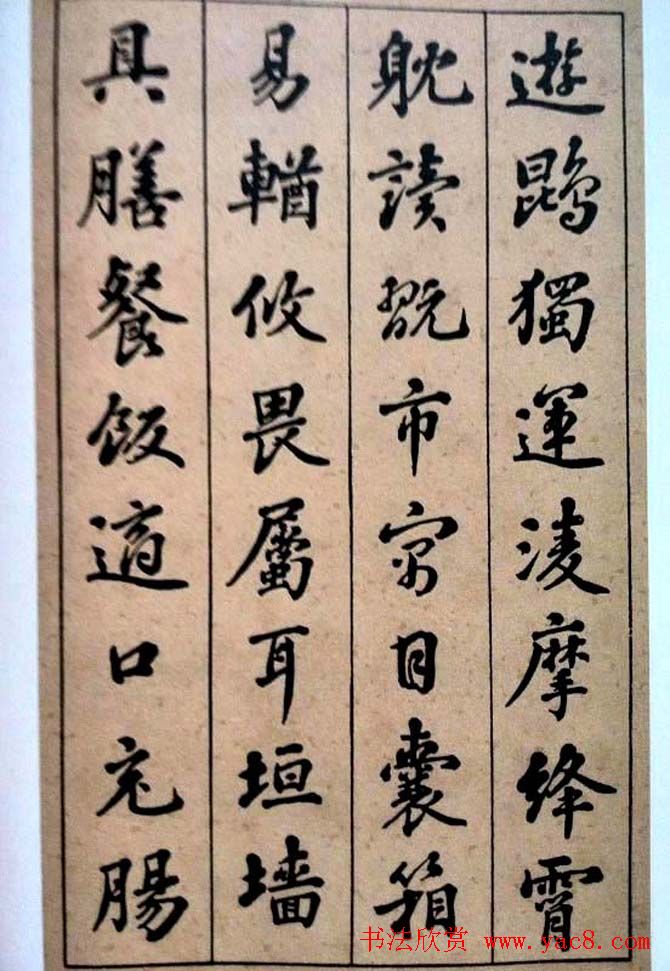 遊鵾獨運淩摩絳霄
躭讀翫市寓目囊箱
易輶攸畏屬耳垣墻
具膳餐飯適口充腸
书法欣赏 www.yac8.com